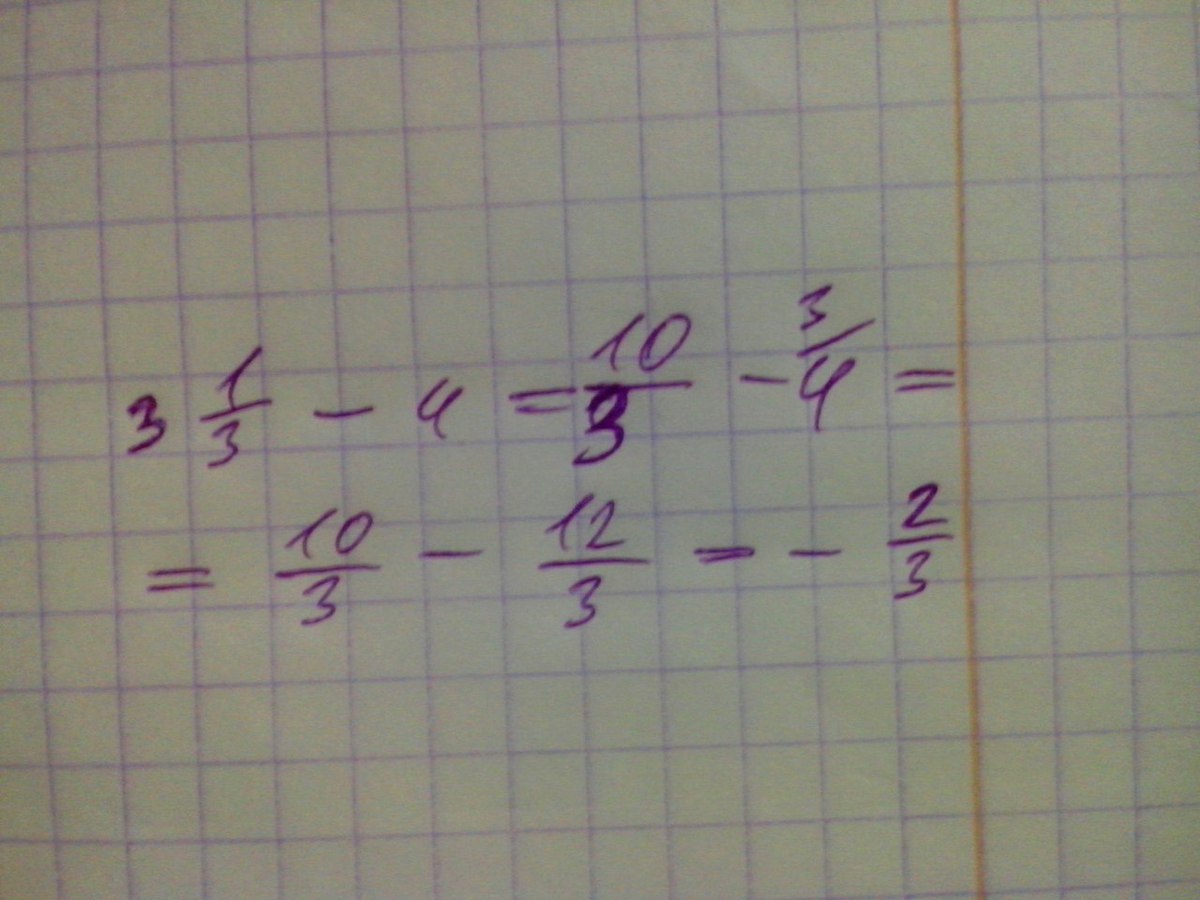 3 1/3 - 4 = 10/3 - 3/4 =
= 10/3 - 12/3 = - 2/3